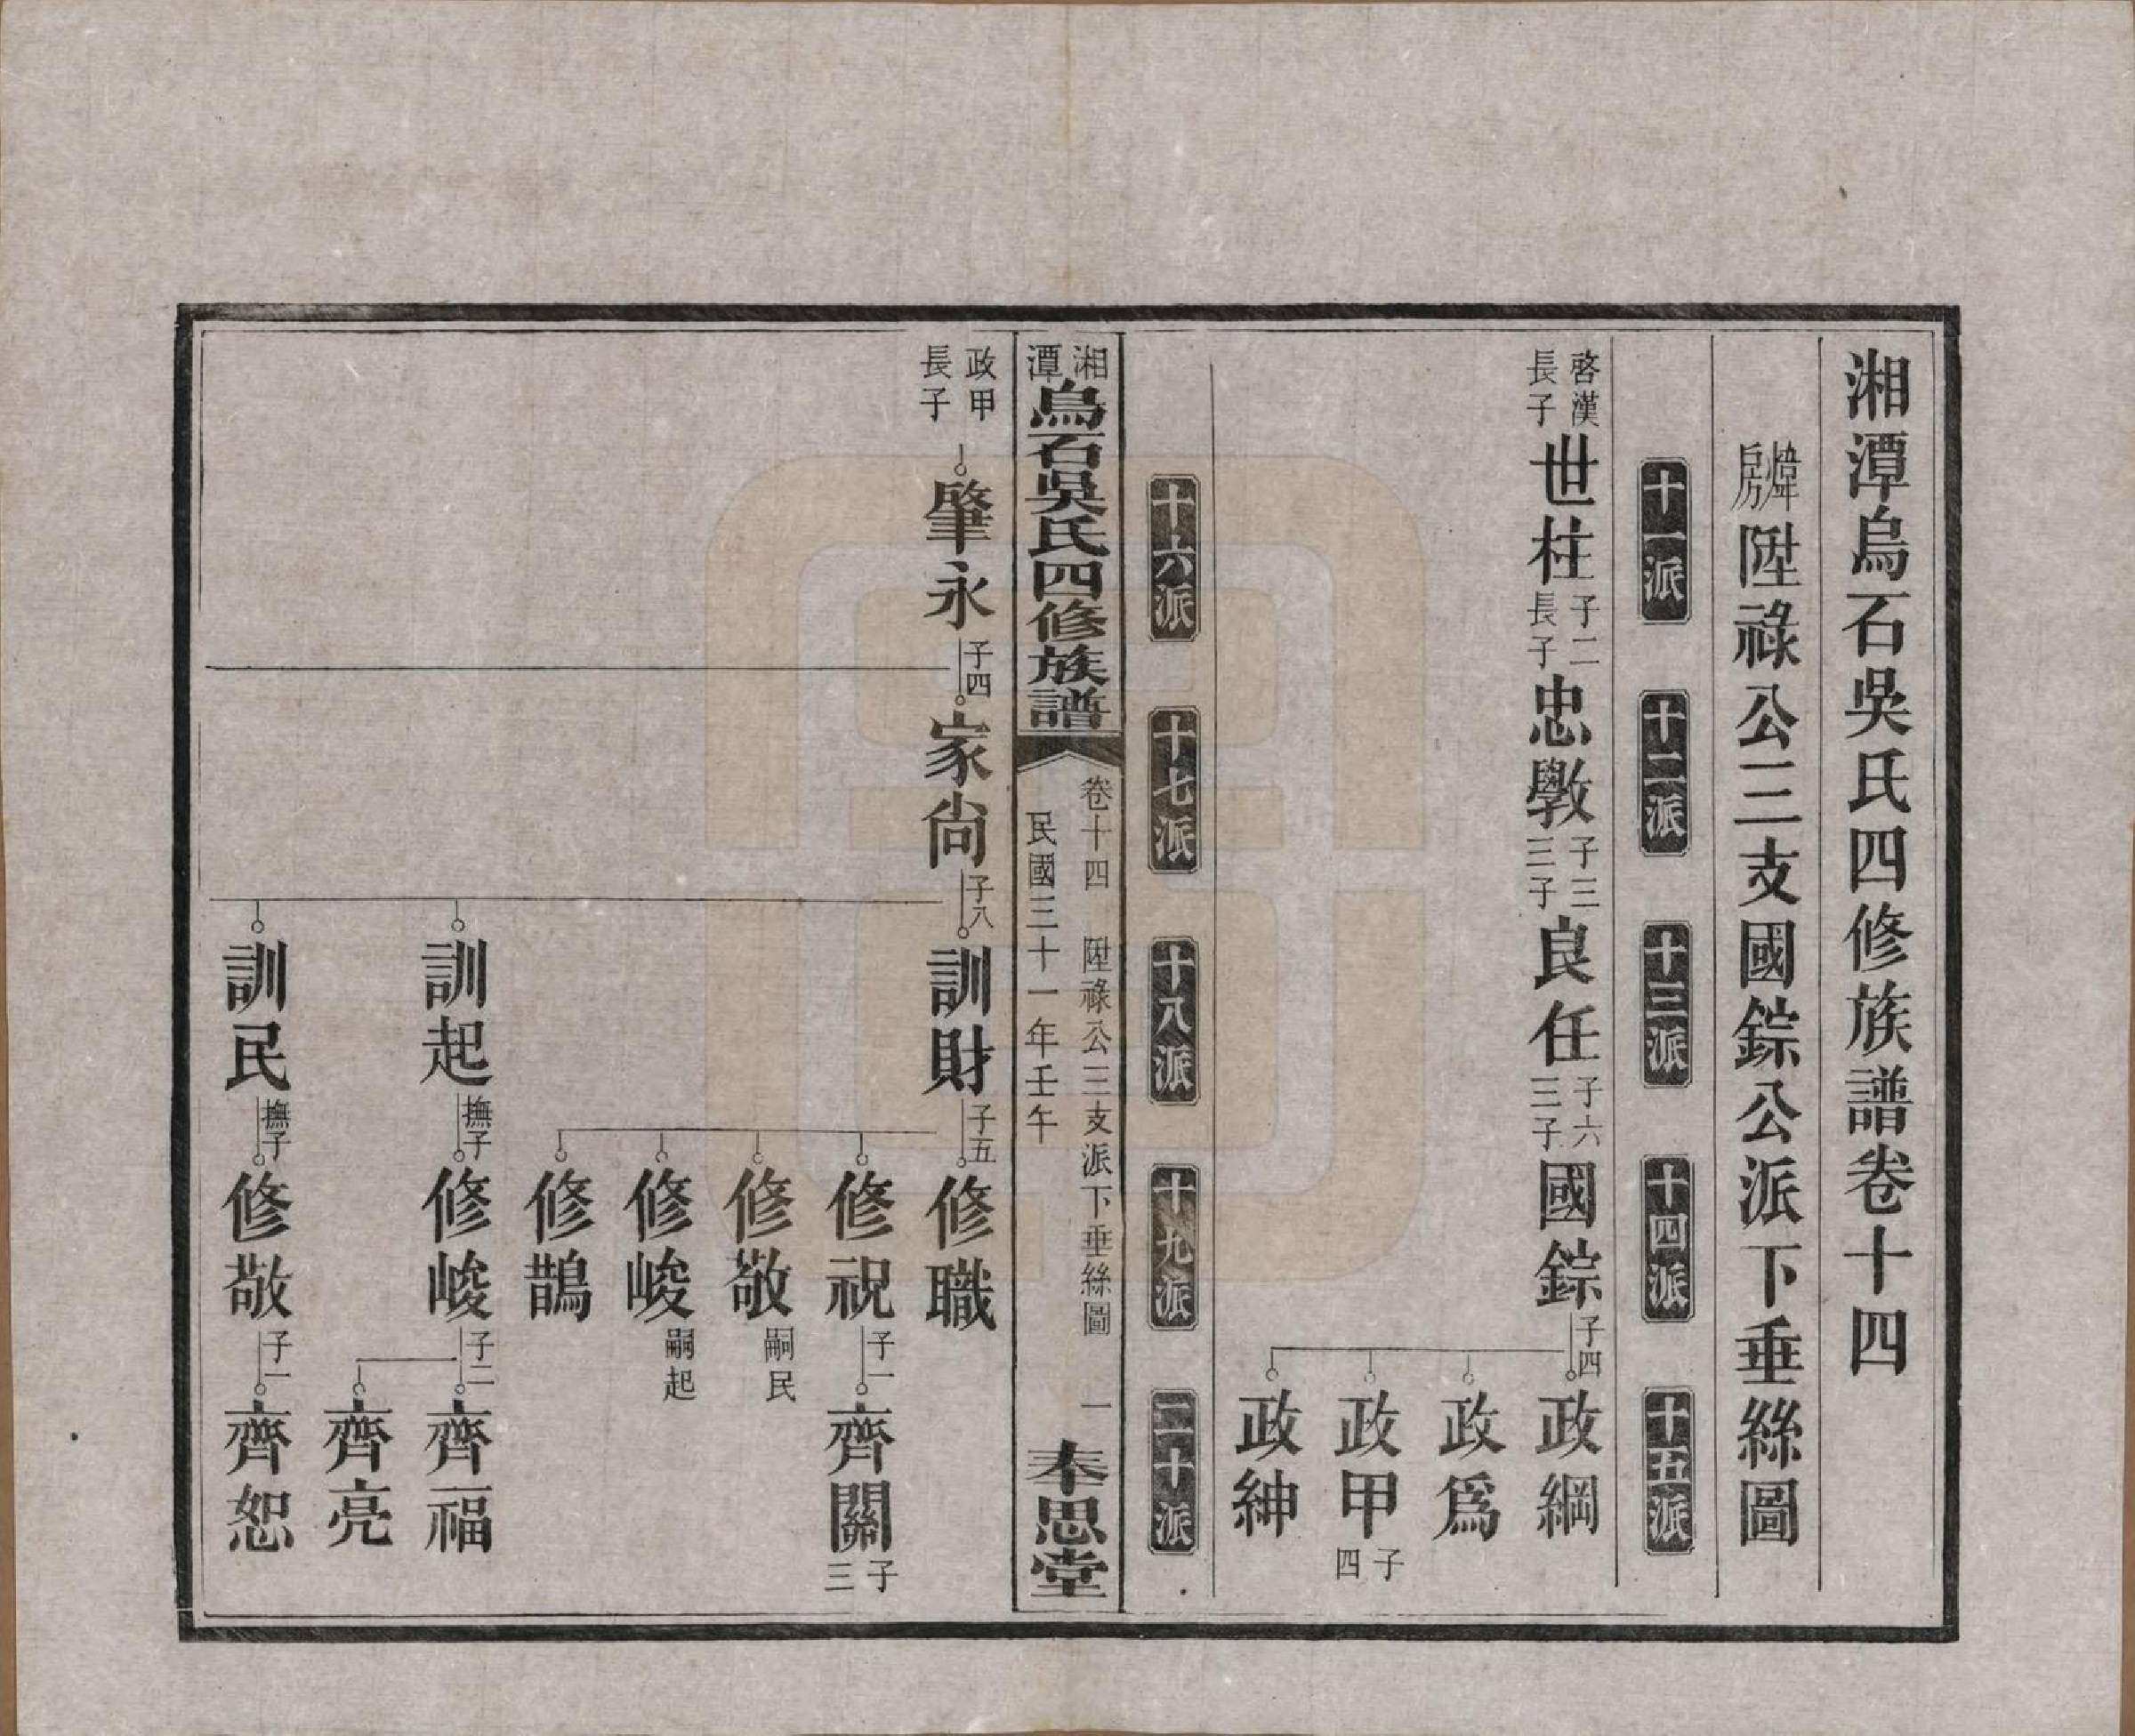 湘潭烏石吳氏四修族譜卷十四
煒房陞祿公三支國錝公派下垂絲圖
十一派 十二派 十三派 十四派 十五派
啓漢長子 世柱 子二長子 忠斆 子三三子 良任 子六三子 國錝 子四 政綱
政爲
政甲 子四
政紳
十六派 十七派 十八派 十九派 二十派
湘潭烏石吳氏四修族譜
卷十四 陞祿公三支派下垂絲圖 一
民國三十一年壬午
奉思堂
政甲長子 肇永 子四 家尙 子八 訓財 子五 修職
修祝 子一 齊關 子三
修敬 嗣民
修峻 嗣起
修鵲
訓起 撫子 修峻 子二 齊福
齊亮
訓民 撫子 修敬 子一 齊恕